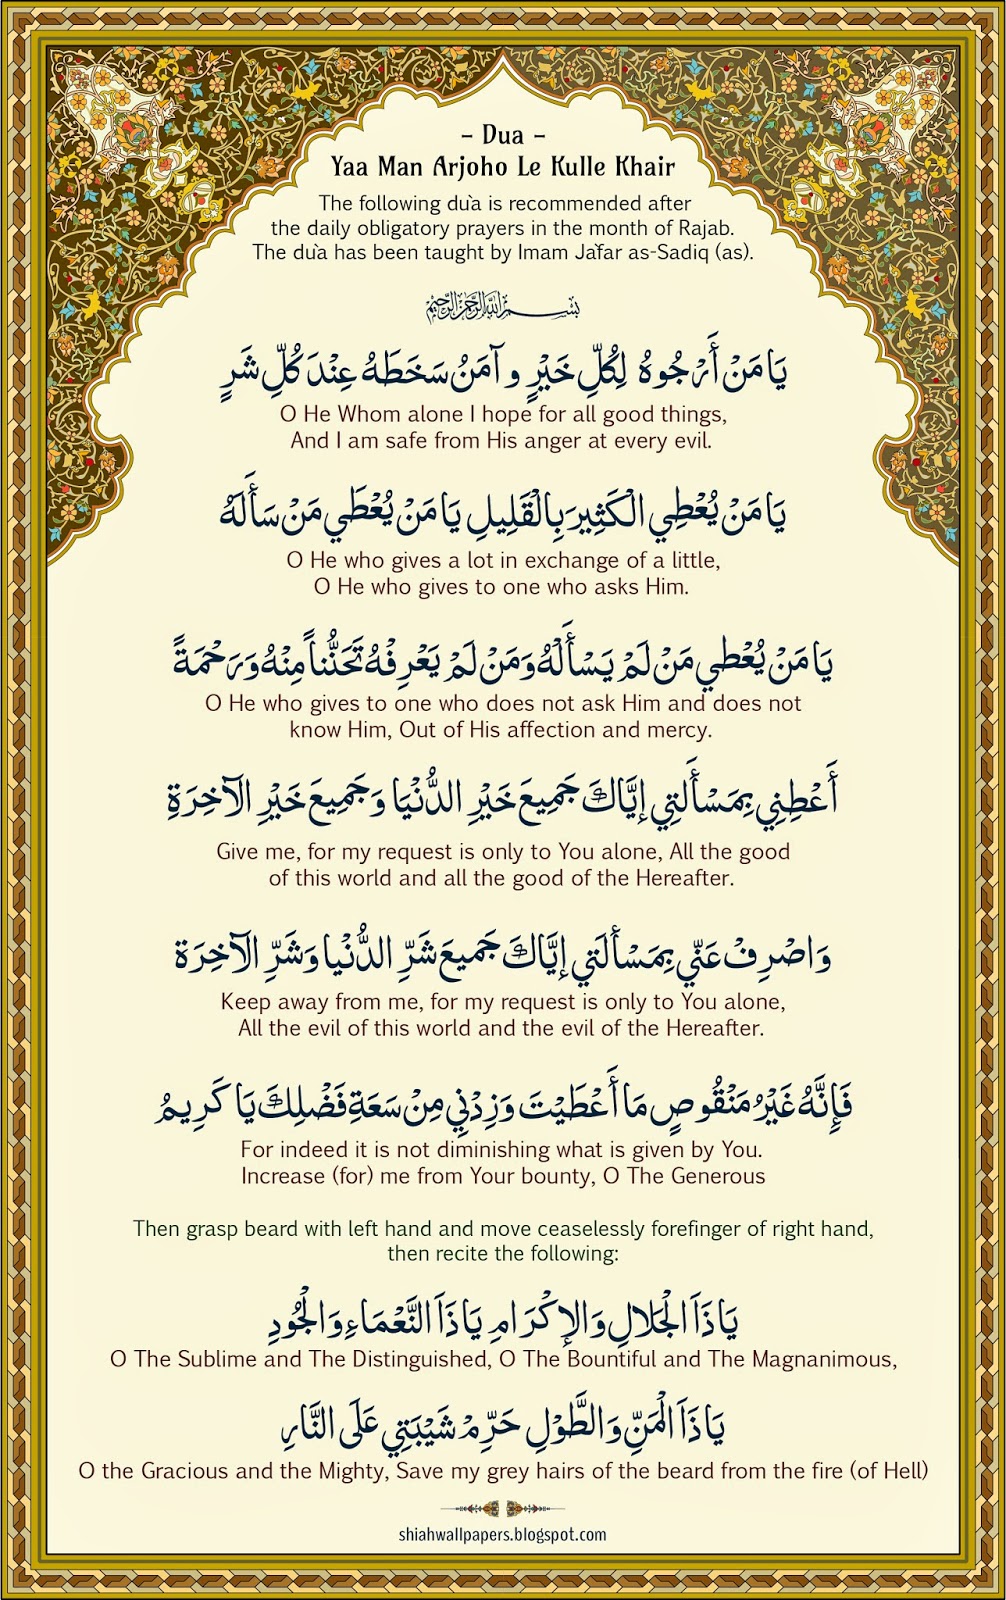 – Dua –
Yaa Man Arjoho Le Kulle Khair
The following du'a is recommended after
the daily obligatory prayers in the month of Rajab.
The du'a has been taught by Imam Ja'far as-Sadiq (as).
بِسْمِ اللهِ الرَّحْمٰنِ الرَّحِيْمِ
يَا مَنْ أَرْجُوهُ لِكُلِّ خَيْرٍ و آمَنُ سَخَطَهُ عِنْدَ كُلِّ شَرٍ
O He Whom alone I hope for all good things,
And I am safe from His anger at every evil.
يَا مَنْ يُعْطِي الْكَثِيرَ بِالْقَلِيلِ يَا مَنْ يُعْطَي مَنْ سَأَلَهُ
O He who gives a lot in exchange of a little,
O He who gives to one who asks Him.
يَا مَنْ يُعْطي مَنْ لَمْ يَسْأَلْهُ وَمَنْ لَمْ يَعْرِفْهُ تَحَنُّناً مِنْهُ وَرَحْمَةً
O He who gives to one who does not ask Him and does not
know Him, Out of His affection and mercy.
أَعْطِنِي بِمَسْأَلَتِي إيَّاكَ جَمِيعَ خَيْرِ الدُّنْيَا وَجَمِيعَ خَيْرِ الآخِرَةِ
Give me, for my request is only to You alone, All the good
of this world and all the good of the Hereafter.
وَاصْرِفْ عَنّي بِمَسْأَلَتي إيَّاكَ جَميعَ شَرِّ الدُّنْيا وَشَرِّ الآخِرَة
Keep away from me, for my request is only to You alone,
All the evil of this world and the evil of the Hereafter.
فَإِنَّهُ غَيْرُ مَنْقُوصٍ مَا أَعْطَيْتَ وَزِدْنِي مِنْ سَعَةِ فَضْلِكَ يَا كَرِيمُ
For indeed it is not diminishing what is given by You.
Increase (for) me from Your bounty, O The Generous
Then grasp beard with left hand and move ceaselessly forefinger of right hand,
then recite the following:
يَا ذَاَ الْجَلالِ وَالإكْرَامِ يَا ذَاَ النَّعْمَاءِ وَالْجُودِ
O The Sublime and The Distinguished, O The Bountiful and The Magnanimous,
يَا ذَاَ الْمَنِّ وَالطَّوْلِ حَرِّمْ شَيْبَتِي عَلَى النَّارِ
O the Gracious and the Mighty, Save my grey hairs of the beard from the fire (of Hell)
shiahwallpapers.blogspot.com